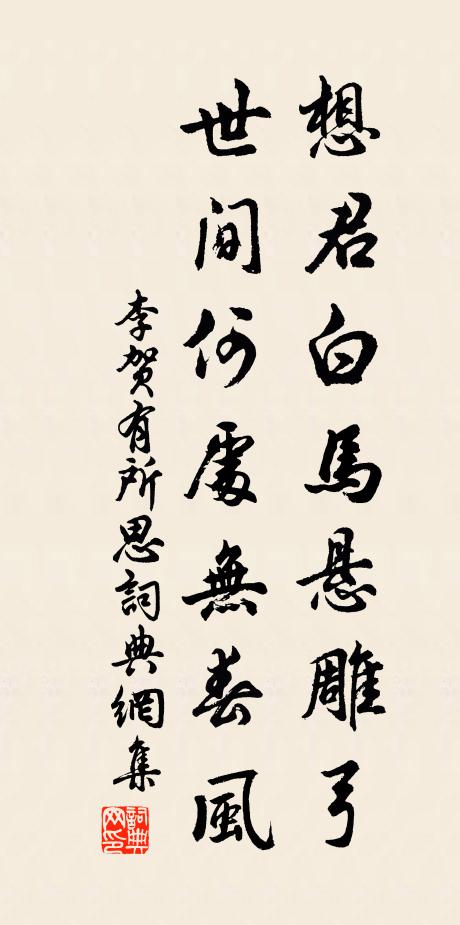 想君白馬悬雕弓
世间何處無春風
李贺有所思詞典網集
詞典网印